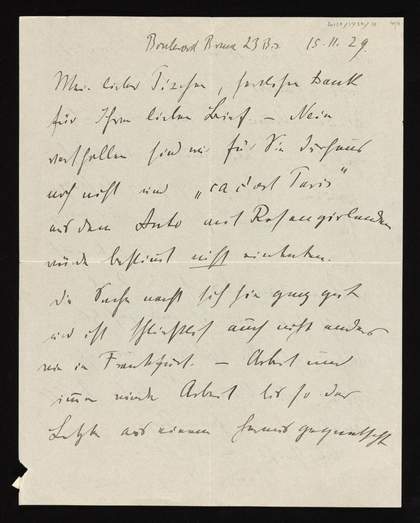 Boulevard Brune 23 Bis 15.11.29.
Mein lieber, herzlichen Dank
für Ihren lieben Brief – Nein
verschollen sind wir für Sie durchaus
noch nicht und „ Paris"
aus dem Auto mit Rosengirlanden
würde bestimmt nicht
Die Sache macht sich hier ganz gut
und ist schließlich auch nicht anders
wie in Frankfurt. – Arbeit und
immer wieder Arbeit bis so der
Letzte aus einem